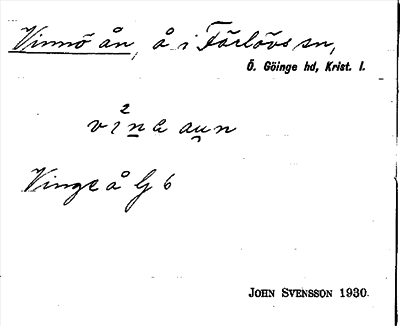 Vinnö ån, å i Färlövs sn,
Ö. Göinge hd, Krist. l.
Vinge å G 6
JOHN SVENSSON 1930.